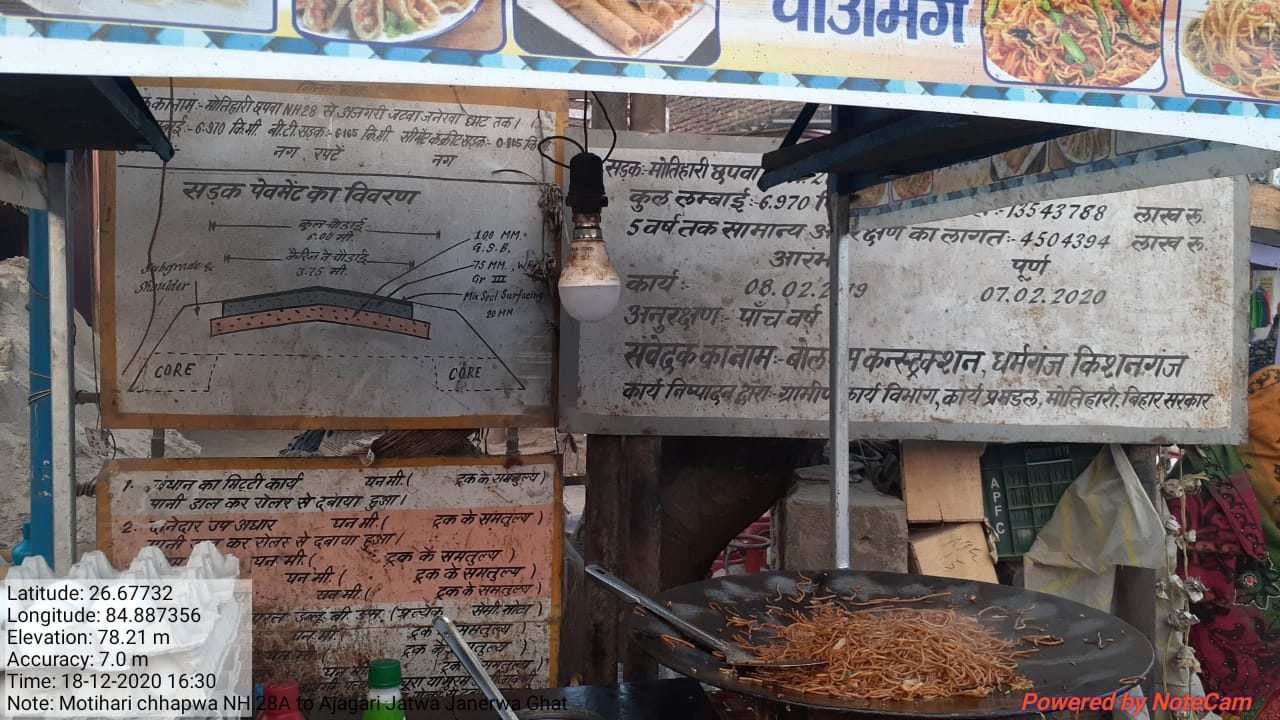 चाउमिंग
के का नाम:- मोतिहारी छपवा NH28 से अजगरी जटवा जनेरवा घाट तक।
लम्बाई:- 6.970 कि.मी. बी.टी.सड़क:- 6.165 कि.मी. सीमेंट कंक्रीट सड़क:- 0.805 कि.मी
नग, रपटें नग
सड़क पेवमेंट का विवरण
कुल चौड़ाई
6.00 मी.
कैरिज वे चौड़ाई
3.75 मी.
Subgrade &
Shoulder
100 MM.
G.S.B.
75 MM.
Gr III
Mix Seal Surfacing
20 MM
CORE
CORE
सड़क:- मोतिहारी छपवा
कुल लम्बाई:- 6.970 :-13543788 लाख रू.
5 वर्ष तक सामान्य क्षण का लागत:- 4504394 लाख रू.
आरंभ पूर्ण
कार्य:- 08.02. 19 07.02.2020
अनुरक्षण:- पाँच वर्ष
संवेदक का नाम:- कन्स्ट्रक्शन, धर्मगंज किशनगंज
कार्य निष्पादन द्वारा:- ग्रामीण कार्य विभाग, कार्य प्रमंडल, मोतिहारी. बिहार सरकार
1. बंधान का मिट्टी कार्य घन मी. ( ट्रक के समतुल्य )
पानी डाल कर रोलर से दबाया हुआ।
2. दानेदार उप आधार घन मी. ( ट्रक के समतुल्य )
पानी डाल कर रोलर से दबाया हुआ।
घन मी. ( ट्रक के समतुल्य )
घन मी. ( ट्रक के समतुल्य )
घन मी. ( ट्रक के समतुल्य )
डब्लू. बी. एम. (प्रत्येक सेमी मोटा)
घन मी. ( ट्रक के समतुल्य )
घन मी. ट्रक के समतुल्य )
ट्रक के समतुल्य )
APFC
Latitude: 26.67732
Longitude: 84.887356
Elevation: 78.21 m
Accuracy: 7.0 m
Time: 18-12-2020 16:30
Note: Motihari chhapwa NH 28A to Ajagari Jatwa Janerwa Ghat
Powered by NoteCam